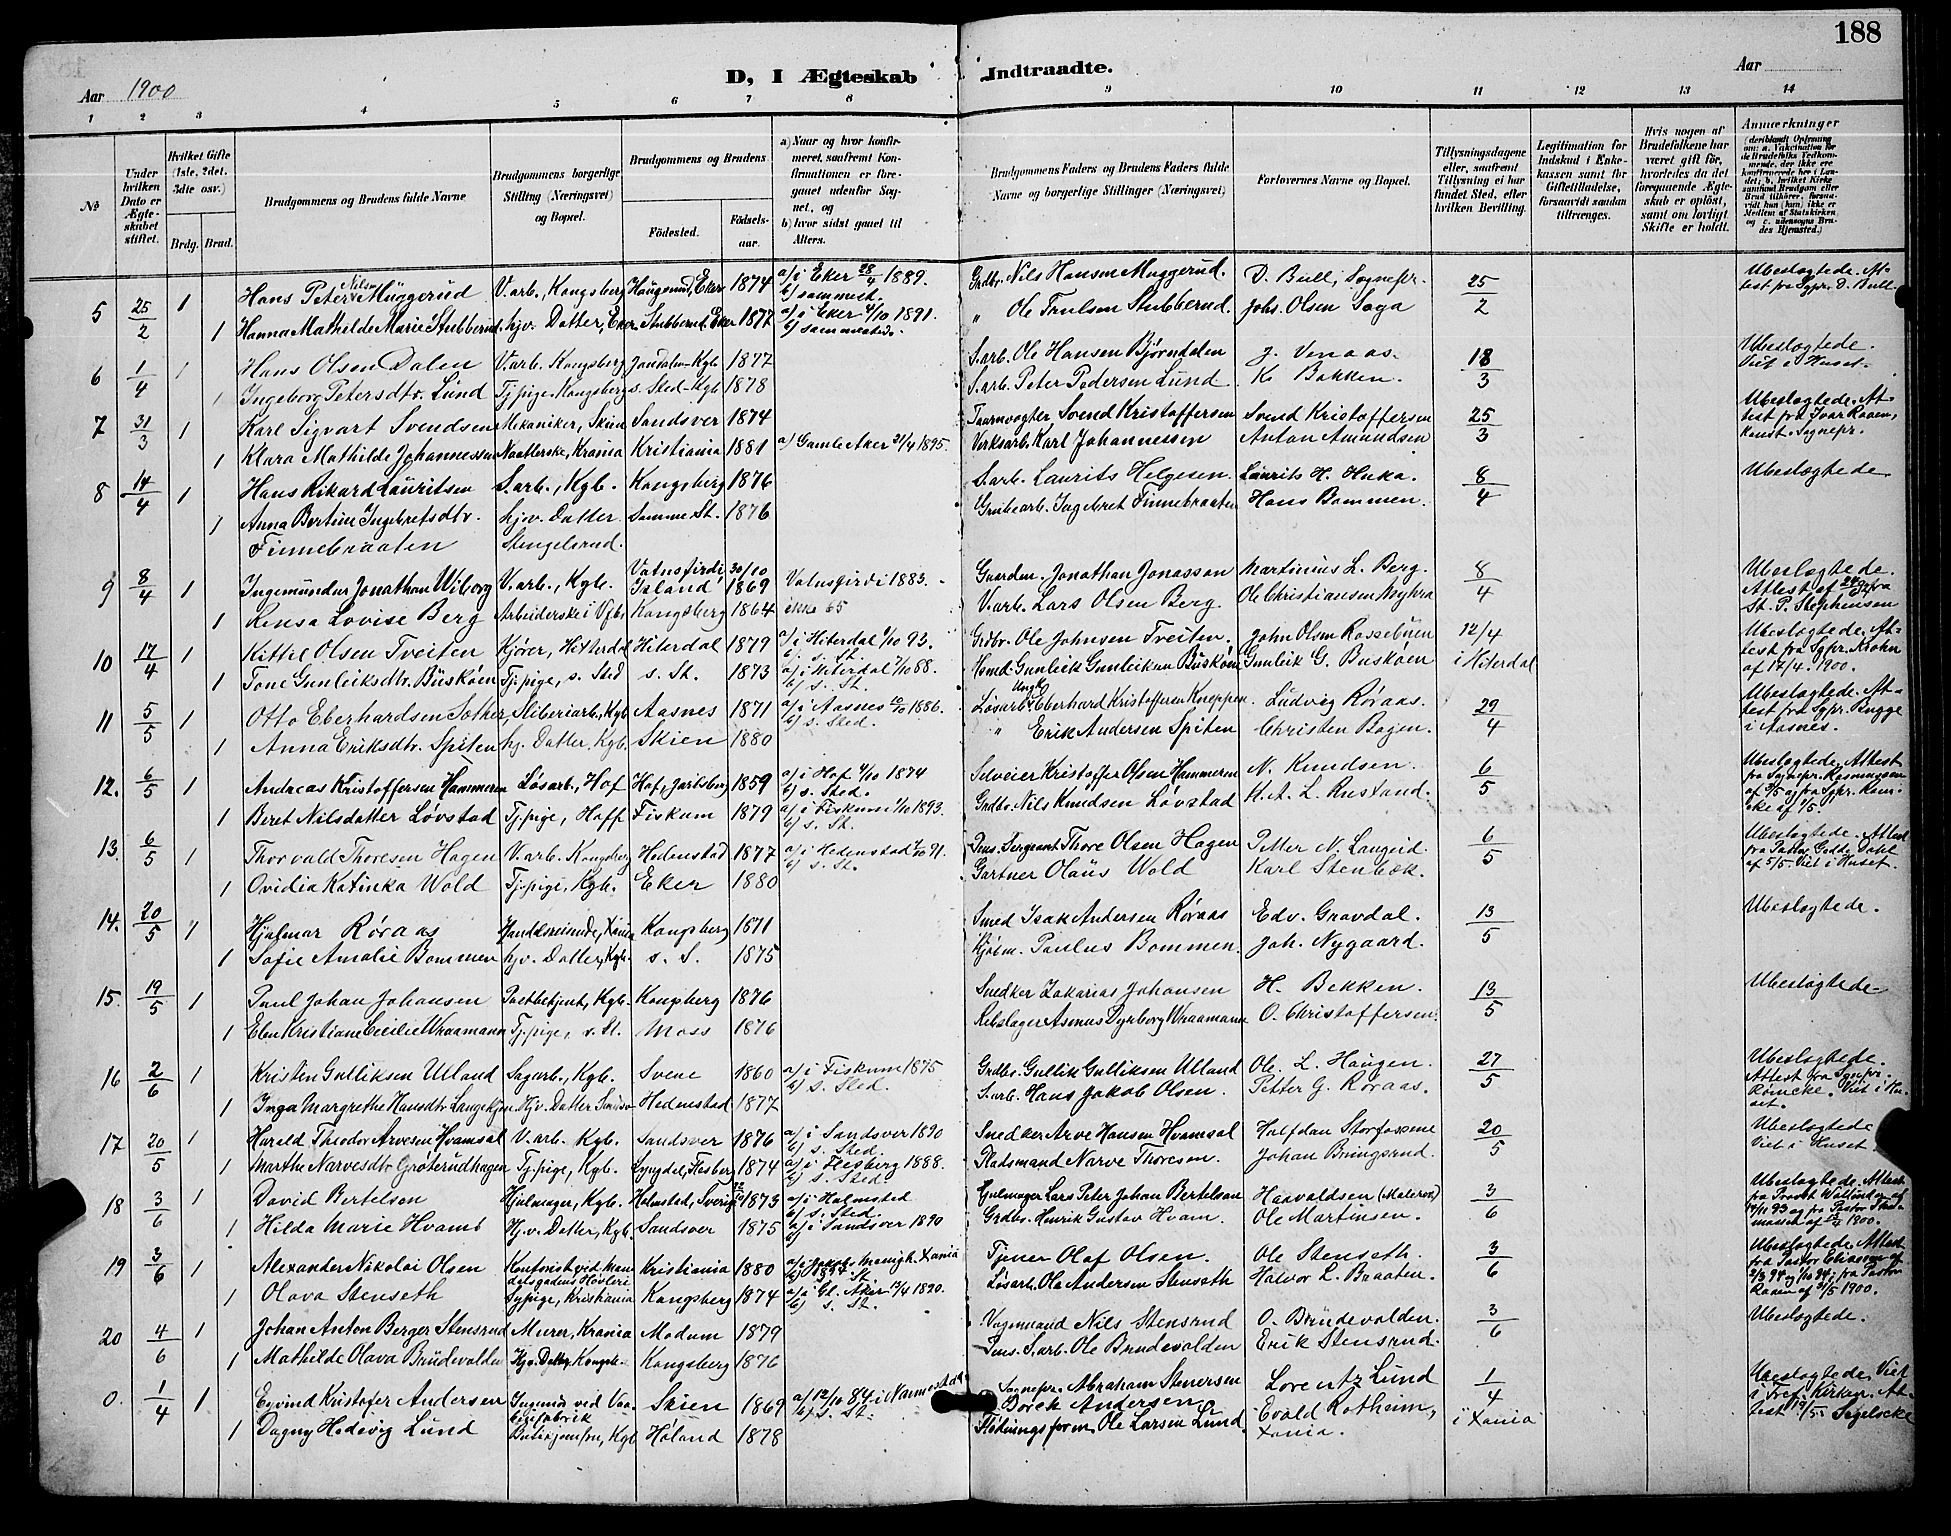 188
D, I Ægteskab Indtraadte.
Aar 1900
Aar
1 2 3 4 5 6 7 8 9 10 11 12 13 14
№
Under hvilken Dato er Ægteskabet stiftet.
Hvilket Gifte (1ste, 2det, 3die osv.)
Brdg. Brud.
Brudgommens og Brudens fulde Navne
Brudgommens borgerlige Stilling (Næringsvei) og Bopæl.
Brudgommens og Brudens
Fødested. Fødselsaar.
a) Naar og hvor konfirmeret, saafremt Konfirmationen er foregaaet udenfor Sognet, og
b) hvor sidst gaaet til Alters.
Brudgommens Faders og Brudens Faders fulde Navne og borgerlige Stillinger (Næringsvei)
Forlovernes Navne og Bopæl.
Tillysningsdagene eller, saafremt Tillysning ei har fundet Sted, efter hvilken Bevilling.
Legitimation for Indskud i Enkekassen samt for Giftetilladelse, forsaavidt saadan tiltrænges.
Hvis nogen af Brudefolkene har været gift før, hvorledes da det foregaaende Ægteskab er opløst, samt om lovligt Skifte er holdt.
Anmærkninger
5 25/2 1 Hans Peter Nilsen Müggerud V.arb., Kongsberg Haugsund, Eker 1874 a/ i Eker 28/4 1889. b/ sammest. Grdbr. Nils Hansen Muggerud. D. Bull, Sognepr. 25/2 Ubeslægtede. Attest fra Sgpr. D. Bull.
1 Hanna Mathilde Marie Stubberud hjv. Datter, Eker Stubberud, Eker 1877 a/ i Eker 4/10 1891. b/ sammested. " Ole Trulsen Stubberud. Johs. Olsen Saga
6 1/4 1 Hans Olsen Dalen V.arb. Kongsberg Jondalen, Kgb. 1877 S.arb. Ole Hansen Bjørndalen J. Venaas. 18/3 Ubeslægtede. Viet i Huset.
1 Ingeborg Petersdtr. Lund Tj.pige, Kongsberg s. Sted, Kgb. 1878 S.arb. Peter Pedersen Lund K. Bakken.
7 31/3 1 Karl Sigvart Svendsen Mekaniker, Skien Sandsver 1874 Taarnvogter Svend Kristoffersen Svend Kristoffersen 25/3 Ubeslægtede. Attest fra Ivar Raaen, Konst. Sognepr.
1 Klara Mathilde Johannessen Naatlerske, Krania Kristiania 1881 a/ Gamle Aker 21/4 1895. Verksarb. Karl Johannessen Anton Amundsen
8 14/4 1 Hans Rikard Lauritsen S.arb., Kgb. Kongsberg 1876 S.arb. Laurits Helgesen. Laurits H. Huka. 8/4 Ubeslægtede
1 Anna Bertine Ingebretsdtr. Finnebraaten hjv. Datter. Stengelsrud. Samme St. 1876 Grubearb. Ingebret Finnebraaten Hans Bommen.
9 8/4 1 Ingemundur Jonathan Wiborg V.arb., Kgb. Vatnsfirdi, Island 30/10 1869 Vatnsfirdi 1883. Gaardm. Jonathan Jonasson Martinius L. Berg. 8/4 Ubeslægtede. Attest af fra St. P. Stephensen
1 Rensa Lovise Berg Arbeiderske i Vfbr. Kongsberg 1864 V.arb. Lars Olsen Berg. Ole Christiansen Nyhra
10 17/4 1 Kittil Olsen Tveiten Kjører, Hitterdal Hiterdal 1879 a/ i Hiterdal 1/10 93. b/ s. St. Grdbr. Ole Johnsen Tveiten. John Olsen Rossebuen 12/4 i Hiterdal Ubeslægtede. Attest fra Sgpr. Krohn af 17/4. 1900.
1 Tone Gunleiksdtr. Buskøen Tj.pige, s. Sted s. St. 1873 a/ i Hiterdal 7/10 88. b/ s. St. Hsmd. Gunleik Gunleiksen Buskøen Gunleik G. Buskøen
11 5/5 1 Otto Eberhardsen Sother Sliberiarb., Kgb. Aasnes 1871 a/ i Aasnes 10/10 1886. b/ s. Sted. Løsarb. Ungk. Eberhard Kristoffersen Kneppen. Ludvig Røraas. 29/4 Ubeslægtede. Attest fra Sgpr. Bugge i Aasnes.
1 Anna Eriksdtr. Spiten hj. Datter, Kgb. Skien 1880 " Erik Andersen Spiten Christen Bogen.
12. 6/5 1 Andreas Kristoffersen Hammeren Løsarb., Hof Hof, Jarlsberg 1859 a/ i Hof 4/10 1874 b/ s. Sted. Selveier Kristoffer Olsen Hammeren N. Knudsen. 6/5 Ubeslægtede, Attest fra Sognepr. Rasmussen
1 Beret Nilsdatter Løvstad Tj.pige, Hoff Fiskum 1879 a/ i Fiskum 1/10 1893. b/ s. St. Grdbr. Nils Knudsen Løvstad H. A. L. Rustand.
13. 6/5 1 Thorvald Thoresen Hagen V.arb. Kongsberg Hedenstad 1877 a/ i Hedenstad 91. b/ s. St. Pens. Sergeant Thore Olsen Hagen Petter N. Langeid. 6/5 Ubeslægtede. Attest fra Pastor Dahl af 5/5. Viet i Huset.
1 Ovidia Katinka Wold Tj.pige, Kgb. Eker 1880 Gartner Olaus Wold Karl Stenbæk.
14. 20/5 1 Hjalmar Røraas Handelsreisende, Xania Kongsberg 1871 Smed Isak Andersen Røraas Edv. Gravdal. 13/5 Ubeslægtede.
1 Sofie Amalie Bommen hjv. Datter, Kgb. s. S. 1875 Kjøbm. Paulus Bommen. Joh. Nygaard.
15. 19/5 1 Paul Johan Johansen Postbetjent, Kgb. Kongsberg 1876 Snedker Zakarias Johansen H. Bekken. 13/5 Ubeslægtede
1 Elen Kristiane Cecilie Wraamann Tj.pige, s. St. Moss 1876 Rebslager Asmus Dyrborg Wraamann O. Christoffersen.
16 2/6 1 Kristen Gulliksen Uland Sagarb., Kgb. Svene 1860 a/ i Fiskum 1875 b/ s. Sted Grdbr. Gullik Gulliksen Ulland Ole. L. Haugen. 27/5 Ubeslægtede. Attest fra Sgnpr. Rømcke. Viet i Huset.
1 Inga Margrethe Hansdtr. Langekjen Hjv. Datter Hedenstad 1877 S.arb. Hans Jakob Olsen. Petter G. Røraas.
17. 20/5 1 Harald Theodor Arvesen Hvamsal V.arb. Kgb. Sandsver 1876 a/ i Sandsver 1890 b/ s. Sted. Snedker Arve Hansen Hvamsal Halfdan Storfossene 20/5 Ubeslægtede Viet i Huset.
1 Marthe Narvesdtr. Grøterudhagen Tj.pige, Kgb. Lyngdal, Flesberg 1874 a/ i Flesberg 1888. b/ s. Sted Pladsmand Narve Thoresen. Johan Bringsrud.
18. 3/6 1 David Bertelsen Hjulmager, Kgb. Halmstad, Sverig 1873 a/ i Halmsted b/ s. Sted. Hjulmager Lars Peter Johan Bertelson Haavaldsen (Malerm.) 3/6 Ubeslægtede. Attest fra Provst Wallinder af 14/11 93 og fra Pastor 1900.
1 Hilda Marie Hvams Hj.v. Datter, Kgb. Sandsver 1875 a/ i Sandsver 1890 Grdbr. Henrik Gustav Hvam. Ole Martinsen.
19 3/6 1 Alexander Nikolai Olsen Kontorist ved Kristiania 1880 a/ Jakob. Menigh. Xania b/ St. Tjener Olaf Olsen. Ole Stenseth. 3/6 Ubeslægtede. Attest fra Pastor
1 Olava Stenseth Sypige, Kristiania Kongsberg 1874 a/ i Gl. Aker 13/4 1890. b/ s. St. Løsarb. Ole Andersen Stenseth Halvor L. Braaten. Raaen af 1900.
20 4/6 1 Johan Anton Berger Stensrud Murer, Krania Modum 1879 Vognmand Nils Stensrud O. Brudevolden. 3/6 Ubeslægtede.
1 Mathilde Olava Brudevolden Hjv. Datter, Kongsb. Kongsberg 1876 Pens. S.arb. Ole Brudevolden Erik Stensrud.
0. 1/4 1 Eyvind Kristofer Andersen Ingeniør ved Vaabenfabrik Skien 1869 a/ 12/10 84 i b/ s. St. Sognepr. Abraham Stenersen Borch Andersen Lorentz Lund 1/4 i Xania Ubeslægtede, Viet i Tref. Kirken. Attest 19/5. Segelcke
1 Dagny Hedevig Lund Kgb Høland 1878 Slodningsform. Ole Larsen Lund. Evald Rotheim, Xania.